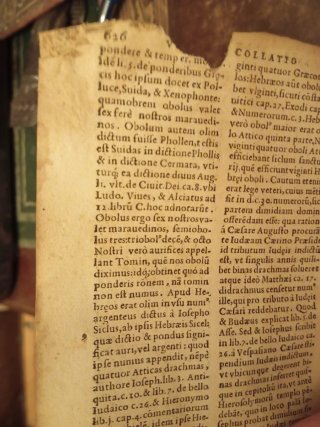 626
COLLATIO
pondere & temper. mo
Idē li. 5. de pōnderibus Gre
cis hoc ipsum docet ex Pol
luce, Suida, & Xenophonte:
quamobrem obolus valet
sex ferè nostros marauedi-
nos. Obolum autem olim
dictum fuisse Phollen, testis
est Suidas in dictione Phollis
& in dictione Cermata, vti-
turq; ea dictione diuus Aug.
li. vlt. de Ciuit. Dei ca. 8. vbi
Ludo. Viues, & Alciatus ad
12. librū C. hoc adnotarūt.
Obolus ergo sex nostros va-
let marauedinos, semiobo-
lus tres: triobol⁹ decē, & octo
Nostri verò aurifices appel-
lant Tomin, quē nos obolū
diximus: id q; obtinet quò ad
ponderis rōnem, nā tomin
non est numus. Apud He-
breos erat olim in vsu num⁹
argenteus dictus à Iosepho
Siclus, ab ipsis Hebræis Sicel:
quæ dictio & pondus signi-
ficat auri, vel argenti: quod
ipse numus appendit, nēpè
quatuor drachmas Atticas,
authore Ioseph. lib. 3. Anti-
quita. c. 10. & lib. 7. de bello
Iudaico c. 26. & Hieronymo
lib. j. cap. 4. cōmentariorum
idem ipse Hie
ginti quatuor Græcos
los: Hebræos aūt obolos
ber viginti, sicuti cōstat
uitici cap. 27. Exodi cap
& Numerorum. c. 3. Heb
verò obol⁹ maior erat o
lo Attico quinta parte, N
viginti quatuor oboli Att
efficiebant siclum sanctu
rij, quē efficiunt viginti H
brei oboli. Dabant autem
erat lege veteri, cuius mē
sit in d. c. 30. numerū, sic
partem dimidiam domin
offerēdam esse: qua ration
à Cæsare Augusto procurā
te Iudæam Cæsaris Præsid
id tributum Iudæis indictū
est, vt singulis annis quili-
bet binas drachmas solueret
atque ideò Matthæi ca. 17.
didrachmus censetur num⁹
ille, qui pro tributo à Iudęis
Cæsari reddebatur. Quod
& Budæus explicat lib. 5. de
Asse. Sed & Iosephus scribit
lib. 7. de bello Iudaico ca.
26. à Vespasiano Cæsare sti-
pendium Iudæis indictum,
vt vbicunque degerent bi-
nas drachmas inferrent quā-
que in capitolio ita, vt antè
Hierosolymorum templo pē
debāt, quo in loco palā le-